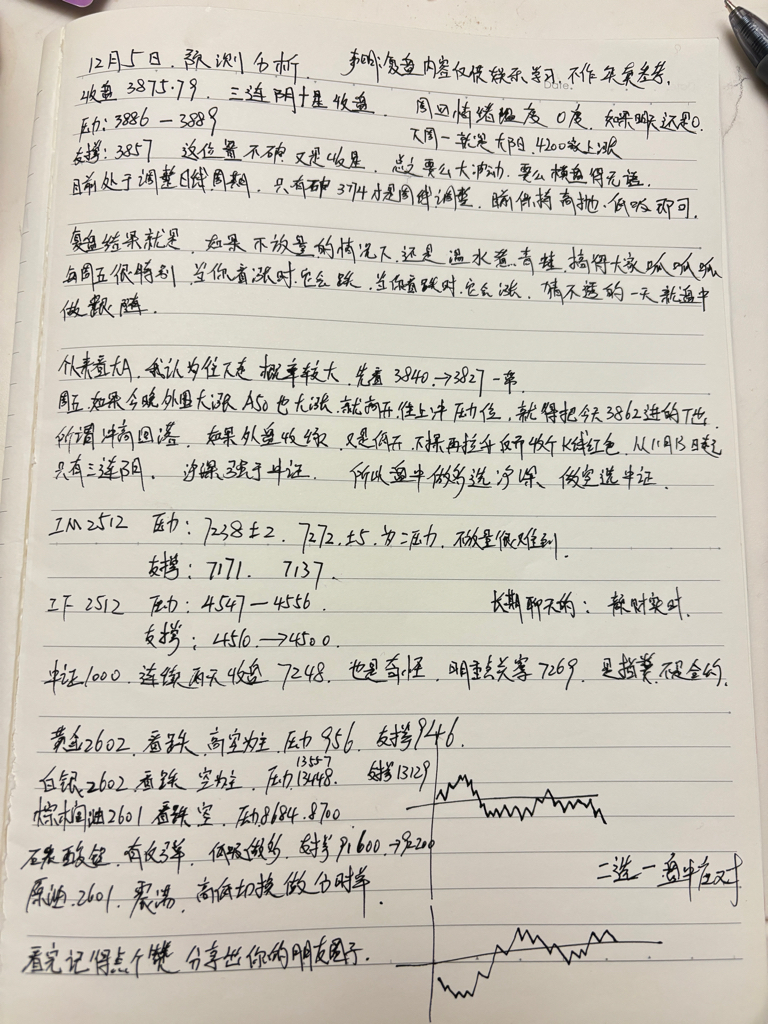 12月5日.预测分析. 声明:复盘内容仅供娱乐学习.不作买卖参考.
收盘 3875.79. 三连阴十星收盘. 周四情绪温度 0度. 如果明天还是0.
压力:3886 — 3889 下周一就是大阳.4200家上涨
支撑:3857 这位置不破.又是收星. 总之要么大波动.要么横盘得无语.
目前处于调整日线周期. 只有破3774才是周线调整. 暂保持高抛.低吸即可.
复盘结果就是. 如果不放量的情况下.还是温水煮青蛙搞得大家呱呱呱
每周五很特别. 当你看涨时.它么跌.当你看跌时.它么涨. 猜不透的一天就盘中
做跟随.
从来看大A.我认为往下走 概率较大.先看3840.→3827一带.
周五.如果今晚外围大涨A50也大涨.就高开.往上冲压力位.就得把今天3862进的T出.
所谓冲高回落. 如果外盘收绿.又是低开.不操再拉升反而收个K线红色.从11月13日起
只有三连阴. 沪深强于中证. 所以盘中做多选沪深.做空选中证.
IM2512 压力:7238±2. 7272.±5.为二压力.不放量很难到.
支撑:7171. 7137.
IF2512 压力:4547—4556. 长期聊下的:
支撑:4510.→4500.
中证1000.连续两天收盘7248.也是奇怪.明重点关察7269. 是指
黄金2602.看跌.高空为主.压力956. 支撑946.
13557
白银.2602 看跌 空为主. 压力.13448. 支撑13129
棕榈油2601 看跌空. 压力.8684.8700
碳酸锂.有反弹. 低吸做多. 支撑91600.→92200
原油.2601.震荡. 高低切换做分时单. 二选一盘中应对
看完记得点个赞 分享出你的朋友圈子.